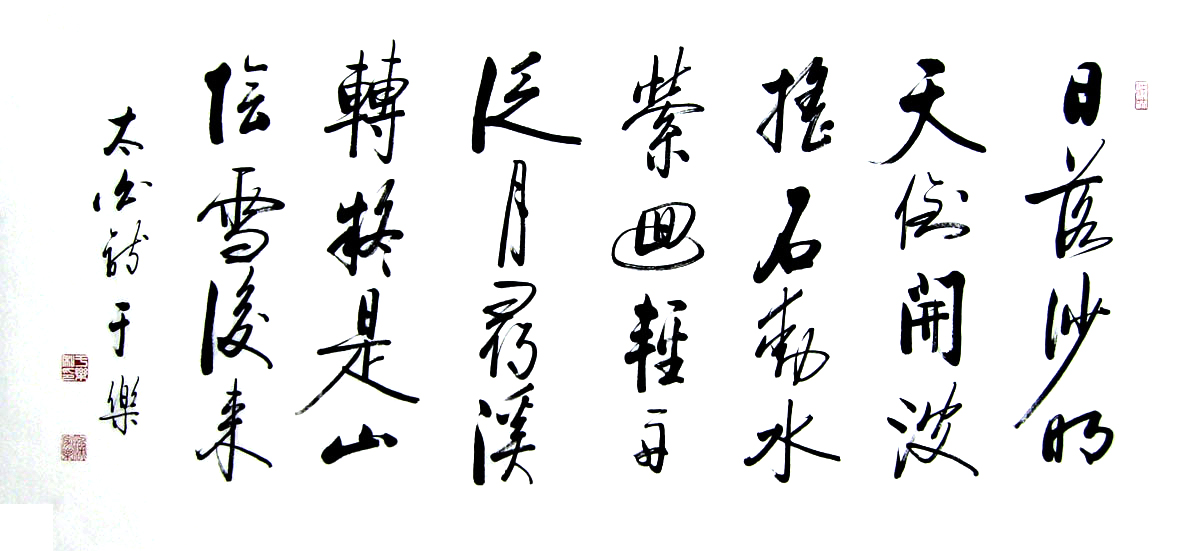 日落沙明
天倒開波
搖石動水
縈迴輕舟
泛月尋溪
轉疑是山
陰雪後來
太白詩于樂